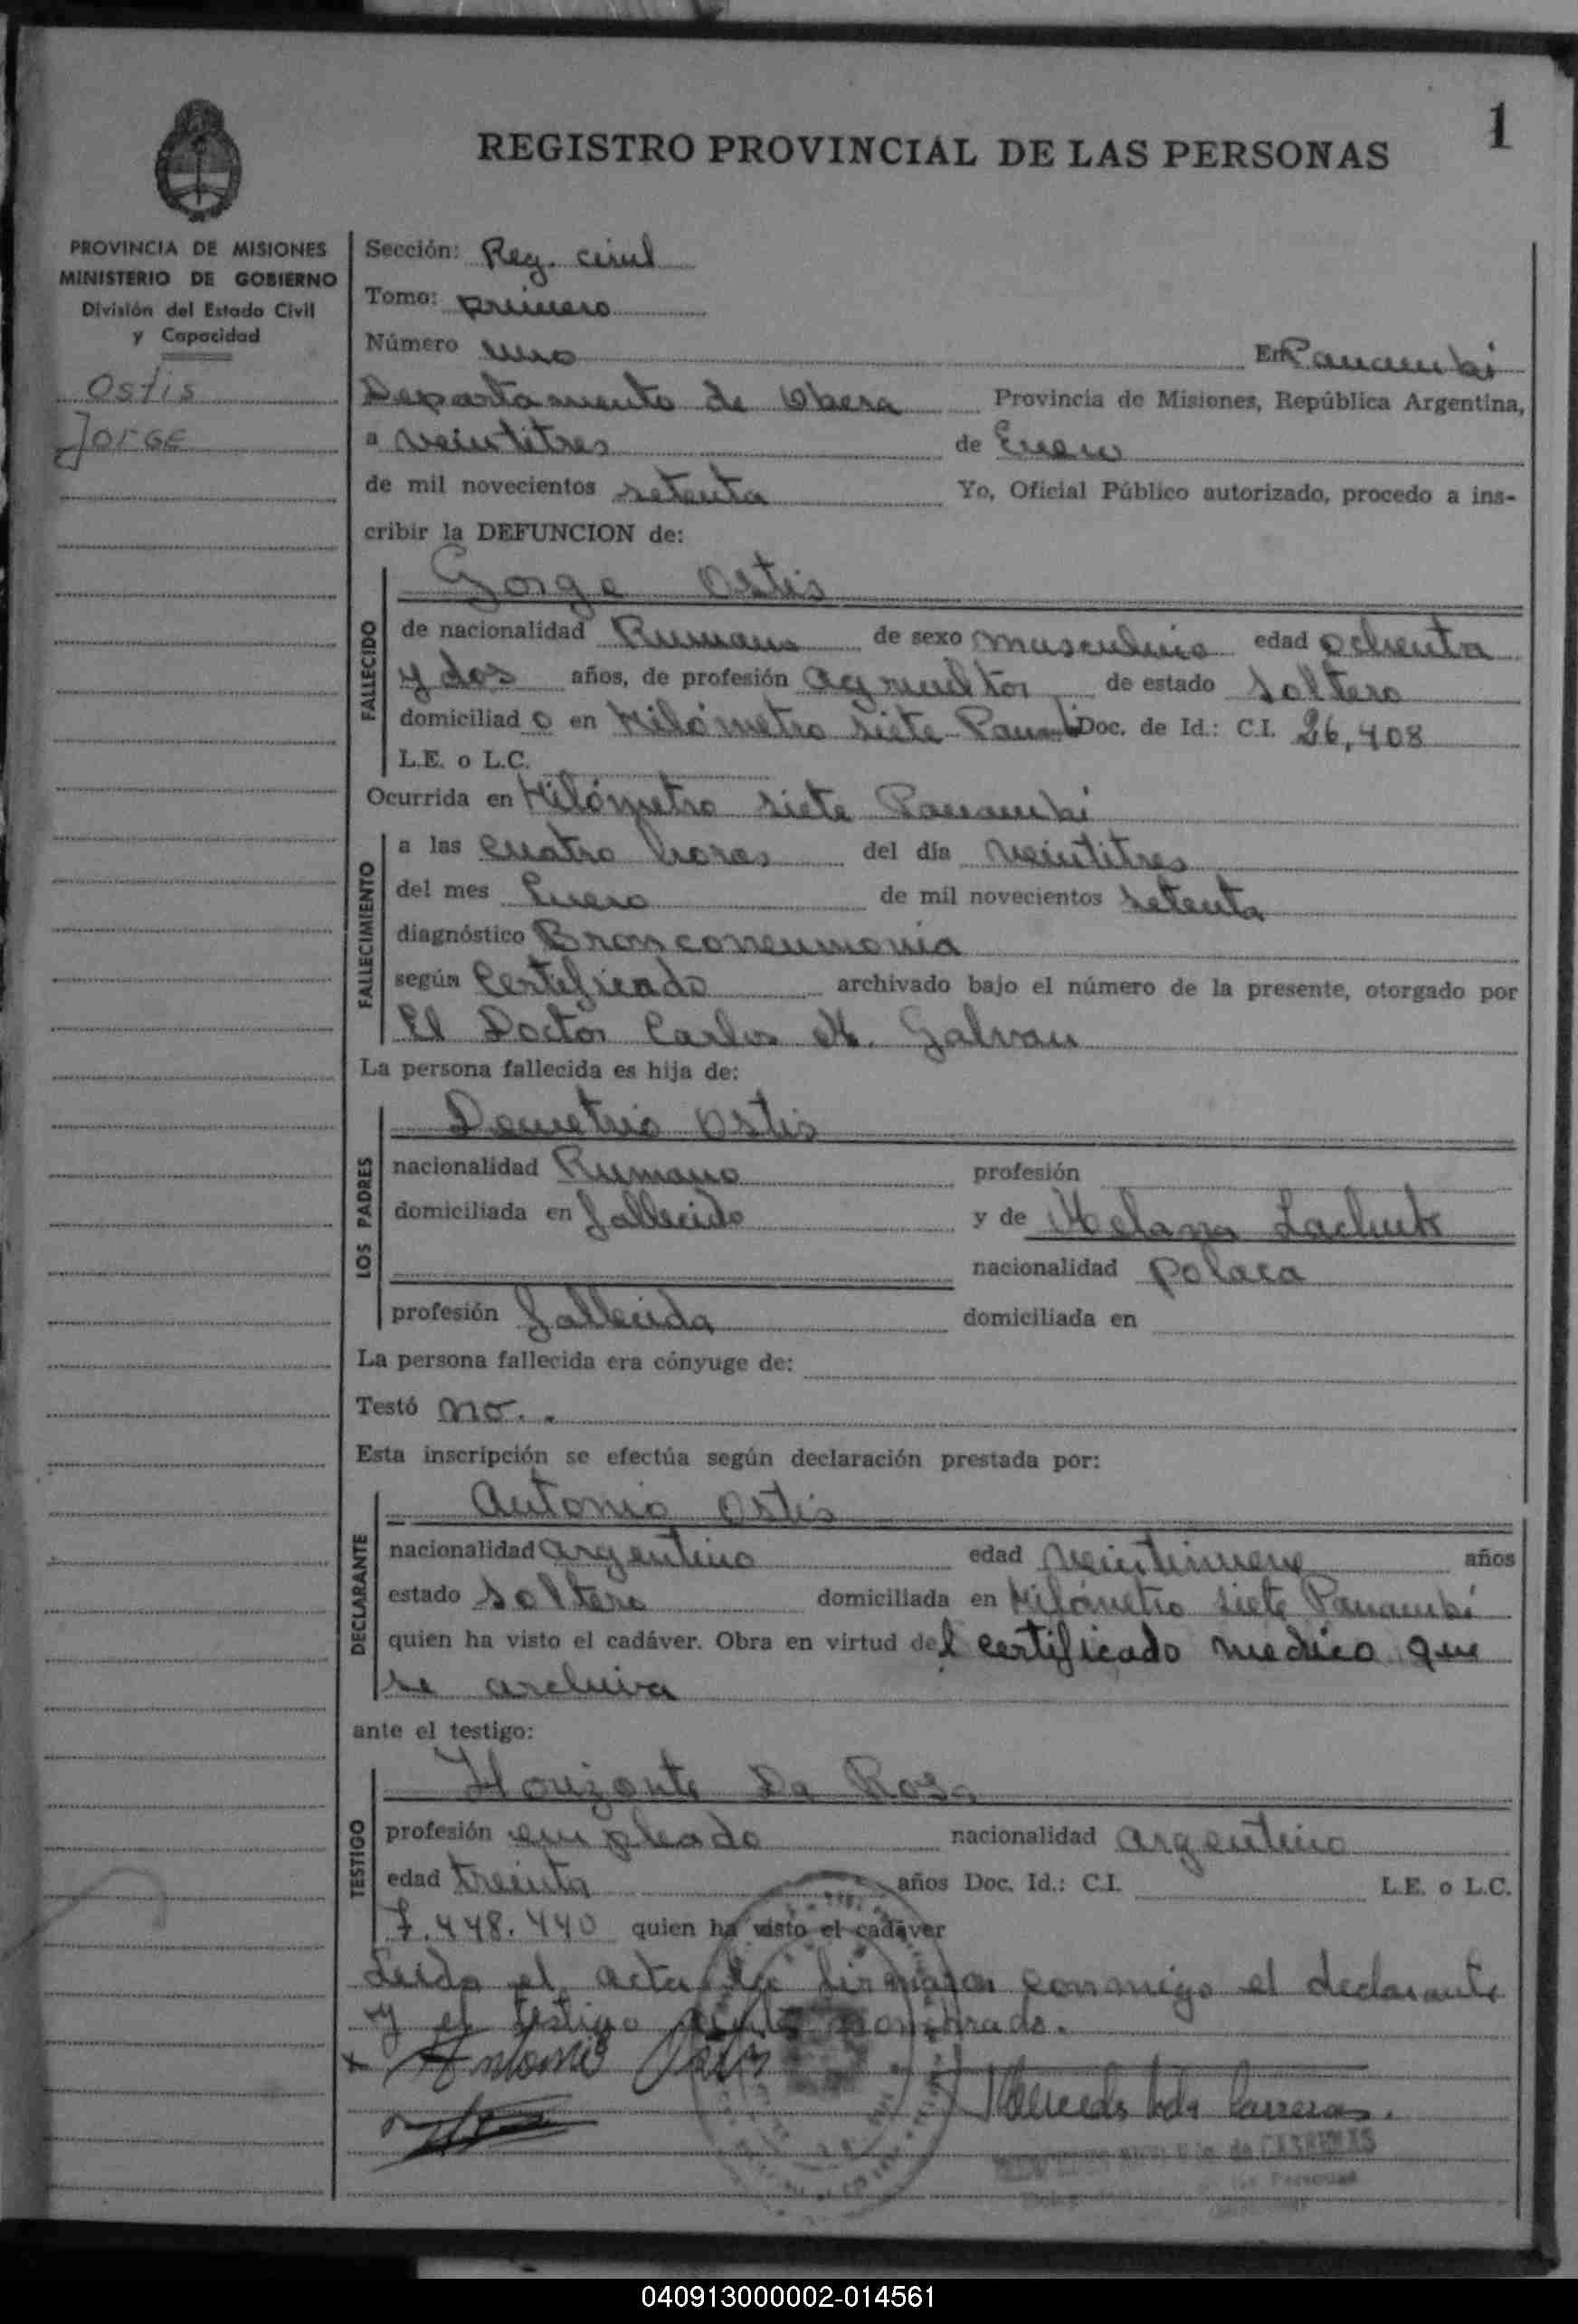 1
REGISTRO PROVINCIAL DE LAS PERSONAS
PROVINCIA DE MISIONES
MINISTERIO DE GOBIERNO
División del Estado Civil
y Capacidad
Ostis
Jorge
Sección: Reg. civil
Tomo: primero
Número uno En Panambi
Departamento de Obera Provincia de Misiones, República Argentina,
a veintitres de Enero
de mil novecientos setenta Yo, Oficial Público autorizado, procedo a ins-
cribir la DEFUNCION de:
Gorge Ostis
FALLECIDO
de nacionalidad Rumano de sexo masculino edad ochenta
y dos años, de profesión agricultor de estado soltero
domiciliado en Kilómetro siete Panambi Doc. de Id.: C.I. 26,408
L.E. o L.C.
Ocurrida en Kilómetro siete Panambi
FALLECIMIENTO
a las cuatro horas del día veintitres
del mes Enero de mil novecientos setenta
diagnóstico Bronconeumonia
según Certificado archivado bajo el número de la presente, otorgado por
El Doctor Carlos H. Galvan
La persona fallecida es hija de:
LOS PADRES
Demetrio Ostis
nacionalidad Rumano profesión
domiciliada en fallecido y de Helana
nacionalidad polaca
profesión fallecida domiciliada en
La persona fallecida era cónyuge de:
Testó no..
Esta inscripción se efectúa según declaración prestada por:
DECLARANTE
Antonio Ostis
nacionalidad argentino edad veintinueve años
estado soltero domiciliada en Kilómetro siete Panambi
quien ha visto el cadáver. Obra en virtud del certificado medico que
se archiva
ante el testigo:
TESTIGO
Horizonte Da Rosa
profesión empleado nacionalidad argentino
edad treinta años Doc. Id.: C.I. L.E. o L.C.
7.448.440 quien ha visto el cadáver
Leida el acta la firmaron conmigo el declarante
y el testigo nombrado.
x Antonio Ostis
de CARRERAS
040913000002-014561